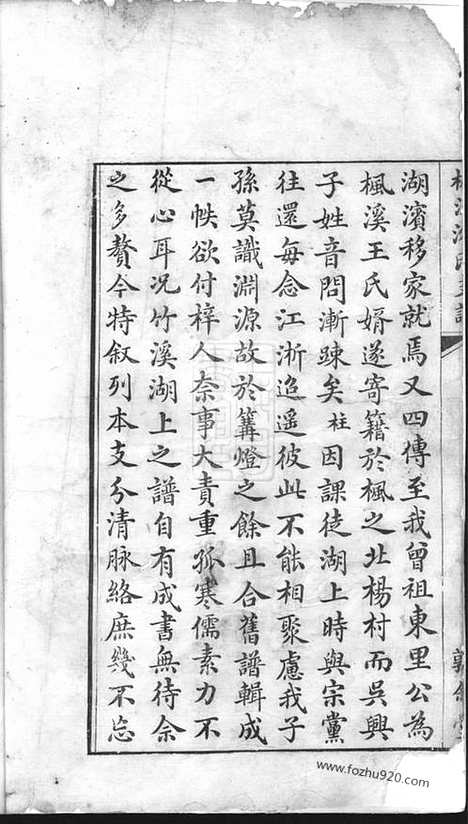 湖濱移家就焉又四傳至我曾祖東里公為
楓溪王氏婿遂寄籍於楓之北楊村而吳興
子姓音問漸踈矣柱因課徒湖上時與宗黨
往還每念江浙迢遥彼此不能相聚慮我子
孫莫識淵源故於篝燈之餘且合舊譜輯成
一帙欲付梓人奈事大責重孤寒儒素力不
從心耳況竹溪湖上之譜自有成書無待余
之多贅今特叙列本支分清脉絡庶幾不忘
www.fozhu920.com